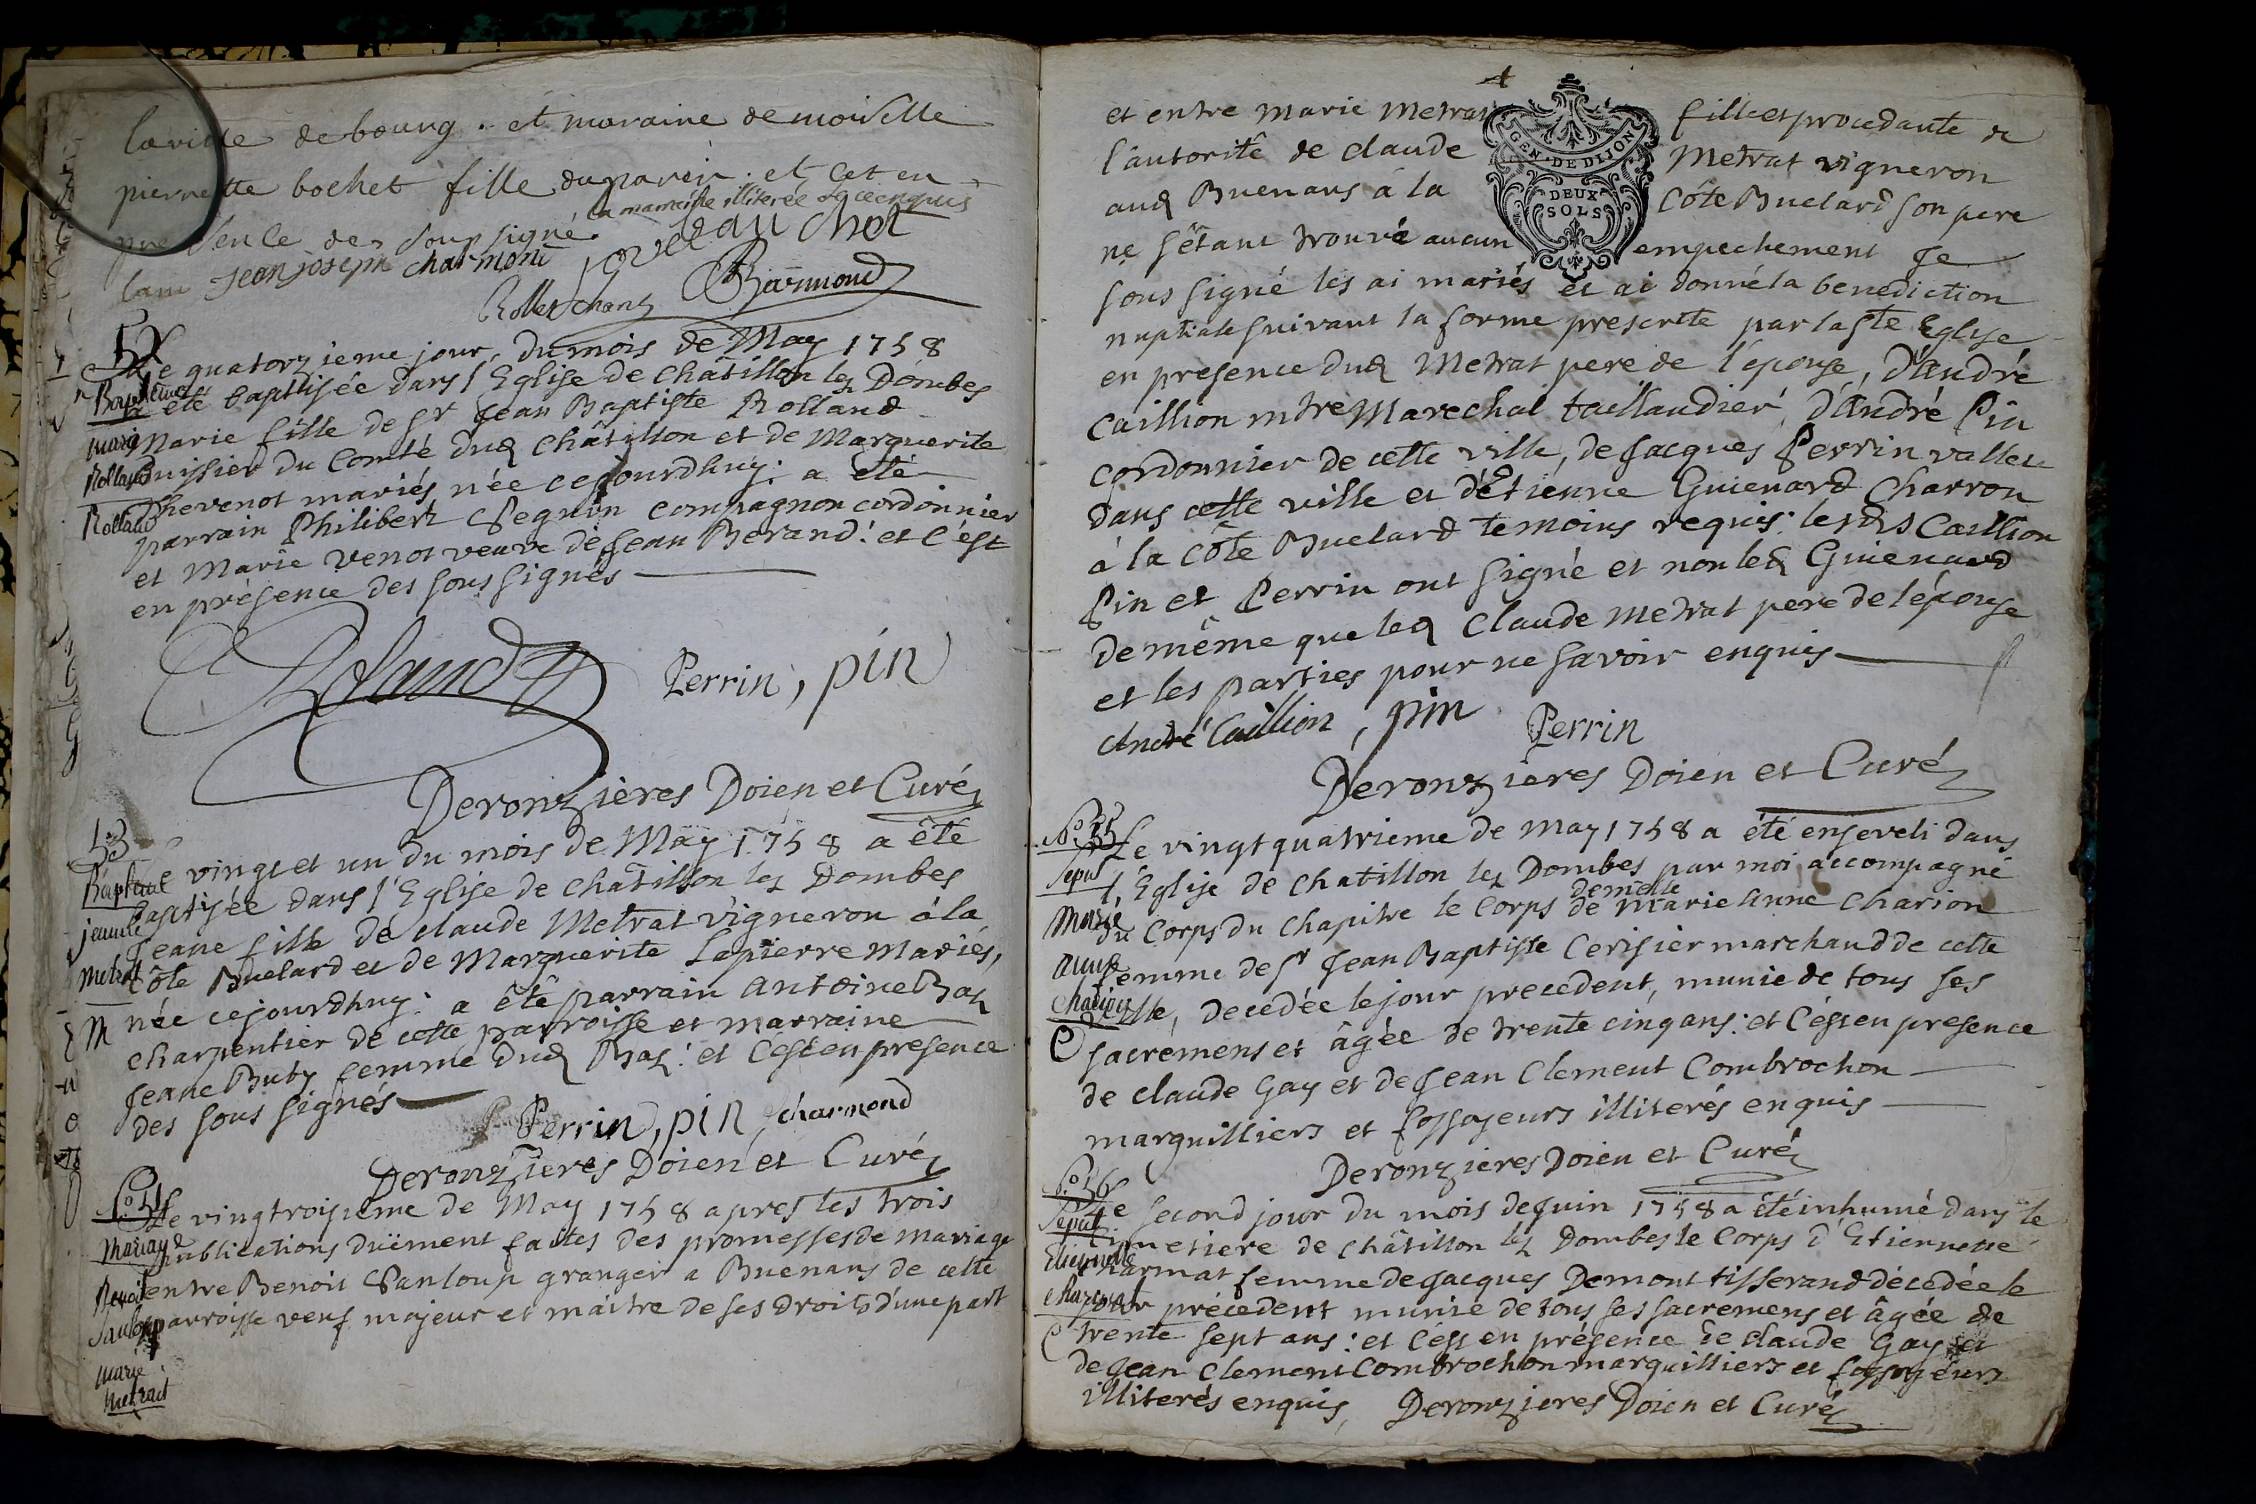 la ville de bourg. et maraine demoiselle
pierrette bochet fille du parein. et cet en
presence des soussigné la maraine illiterée de ce enquis
Jean joseph charmond
Rollet Charmond
52
Bapteme
marie
Rolland
Rolland
Le quatorzieme jour, du mois de May 1758
a été baptisée dans l'Eglise de châtillon lez Dombes
marie fille de Sr Jean Baptiste Rolland
huissier du Comté dud châtillon et de Marguerite
Thevenot mariés, née cejourdhuy: a été
parrain Philibert Seguin compagnon cordonnier
et Marie venot veuve de Jean Berand: et c'est
en présence des sous signés
Rolland Perrin, pin
Deronzières Doien et Curé
53
Bapteme
jeanne
metrat
M
Le vingt et un du mois de May 1758 a été
baptisée dans l'Eglise de châtillon lez Dombes
Jeane fille de claude Metrat vigneron à la
côte Buelard et de Marguerite Lapierre mariés,
née cejourdhuy: a été parrain antoine Bas
charpentier de cette parroisse et marraine
Jeane Buby femme dud Bas: et c'est en presence
des sous signés
Perrin, pin, charmond
Deronzieres Doien et Curé
No 54
mariage
Benoit
Sanloup
marie
metrait
Le vingtroisieme de May 1758 apres les trois
publications duëment faites des promesses de mariage
entre Benoit Sanloup granger a Buenans de cette
parroisse veuf majeur et maitre de ses droits d'une part
4
GEN. DE DIJON
DEUX
SOLS
et entre marie metrat fille et procedante de
l'autorité de claude Metrat vigneron
aud Buenans à la Côte Buelard son pere
ne s'étant trouvé aucun empechement Je
sous signé les ai mariés et ai donné la benediction
nuptiale suivant la forme prescrite par la Ste Eglise
en presence dud Metrat pere de l'épouse, d'André
Caillion mtre Marechal taillandier, d'André Pin
cordonnier de cette ville, de Jacques Perrin vallet
dans cette ville et d'Etienne Guienard Charron
à la côte Buelard temoins requis: lesds Caillion
Pin et Perrin ont signé et non led Guienard
de même que led Claude metrat pere de l'épouse
et les parties pour ne savoir enquis
André Caillion, pin Perrin
Déronzières Doien et Curé
No 55
Sepul
marie
anne
charion
C
Le vingt quatrieme de may 1758 a été enseveli dans
l'Eglise de chatillon lez Dombes par moi accompagné
du Corps du chapitre le Corps de demelle marie anne charion
femme de Sr Jean Baptiste Cerisier marchand de cette
ville, decedée le jour precedent, munie de tous ses
sacremens et âgée de trente cinq ans: et c'est en presence
de claude Gay et de Jean Clement Combrochon
marguilliers et fossoyeurs illiterés enquis
Deronzieres Doien et Curé
No 56
Sepul
Etiennette
charmat
C
Le second jour du mois de Juin 1758 a été inhumé dans le
Cimetiere de châtillon lez Dombes le Corps d'Etiennette
charmat femme de Jacques Demont tisserand décedée le
jour précedent munie de tous ses sacremens et âgée de
trente sept ans: et c'est en présence de claude Gay et
de Jean Clement Combrochon marguilliers et fossoyeurs
illiterés enquis, Deronzieres Doien et Curé